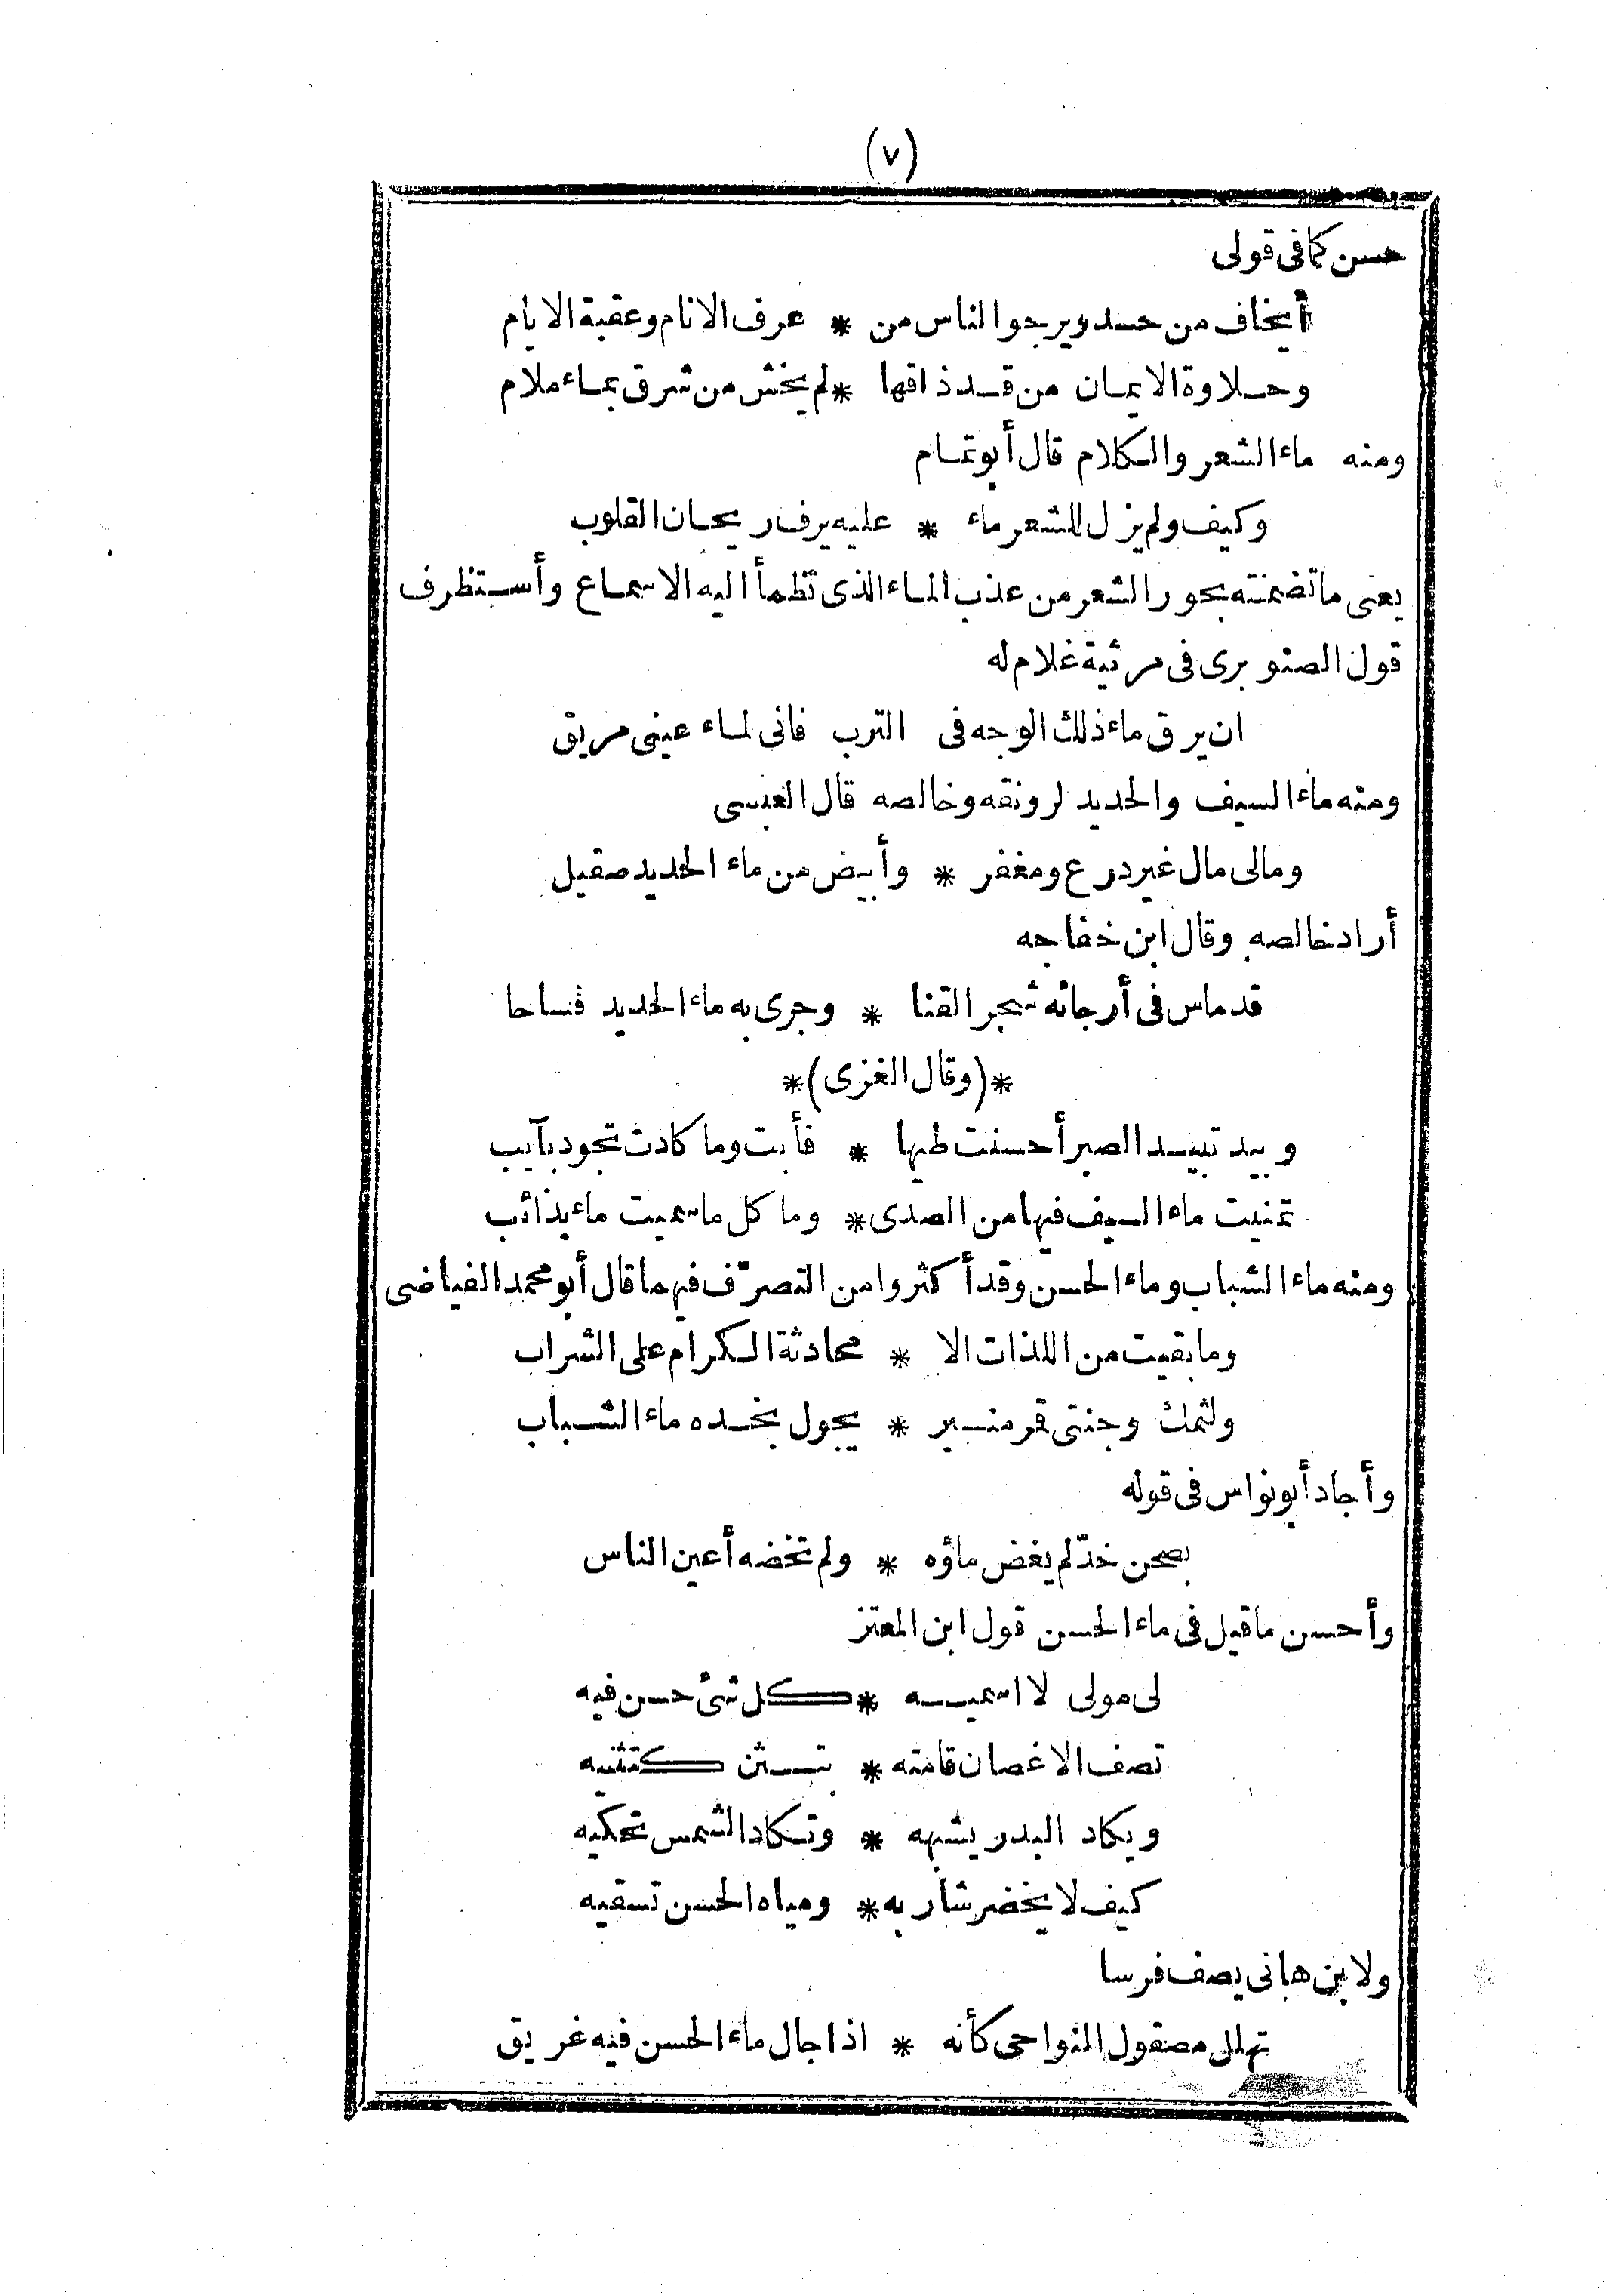 (٧)
حسن كما فى قولى
أيخاف من حسد ويرجو الناس من * عرف الانام وعقبة الايام
وحلاوة الايمان من قد ذاقها * لم يخش من شرق بماء ملام
ومنه ماء الشعر والكلام قال أبو تمام
وكيف ولم يزل للشعر ماء * عليه يرف ريحان القلوب
يعنى ما تضمنته بحور الشعر من عذب الماء الذى تظمأ اليه الاسماع وأستظرف
قول الصنوبرى فى مرثية غلام له
ان يرق ماء ذلك الوجه فى الترب فانى لماء عينى مريق
ومنه ماء السيف والحديد لرونقه وخالصه قال العبسى
ومالى مال غير درع ومغفر * وأبيض من ماء الحديد صقيل
أراد خالصه وقال ابن خفاجه
قد ماس فى أرجائه شجر القنا * وجرى به ماء الحديد فساحا
*(وقال الغزى)*
وبيد تبيد الصبر أحسنت طيها * فأبت وما كادت تجود بآيب
تمنيت ماء السيف فيها من الصدى * وما كل ما سميت ماء بذائب
ومنه ماء الشباب وماء الحسن وقد أكثروا من التصرّف فيهما قال أبو محمد الفياضى
وما بقيت من اللذات الا * محادثة الكرام على الشراب
ولثمك وجنتى قمر منير * يجول بخده ماء الشباب
وأجاد أبو نواس فى قوله
بصحن خدّ لم يغض ماؤه * ولم تخضه أعين الناس
وأحسن ما قيل فى ماء الحسن قول ابن المعتز
لى مولى لا اسميه * كل شئ حسن فيه
تصف الاغصان قامته * بتثن كتثنيه
ويكاد البدر يشبهه * وتكاد الشمس تحكيه
كيف لا يخضر شاربه * ومياه الحسن تسقيه
ولابن هانى يصف فرسا
تهلل مصقول النواحى كأنه * اذا جال ماء الحسن فيه غريق